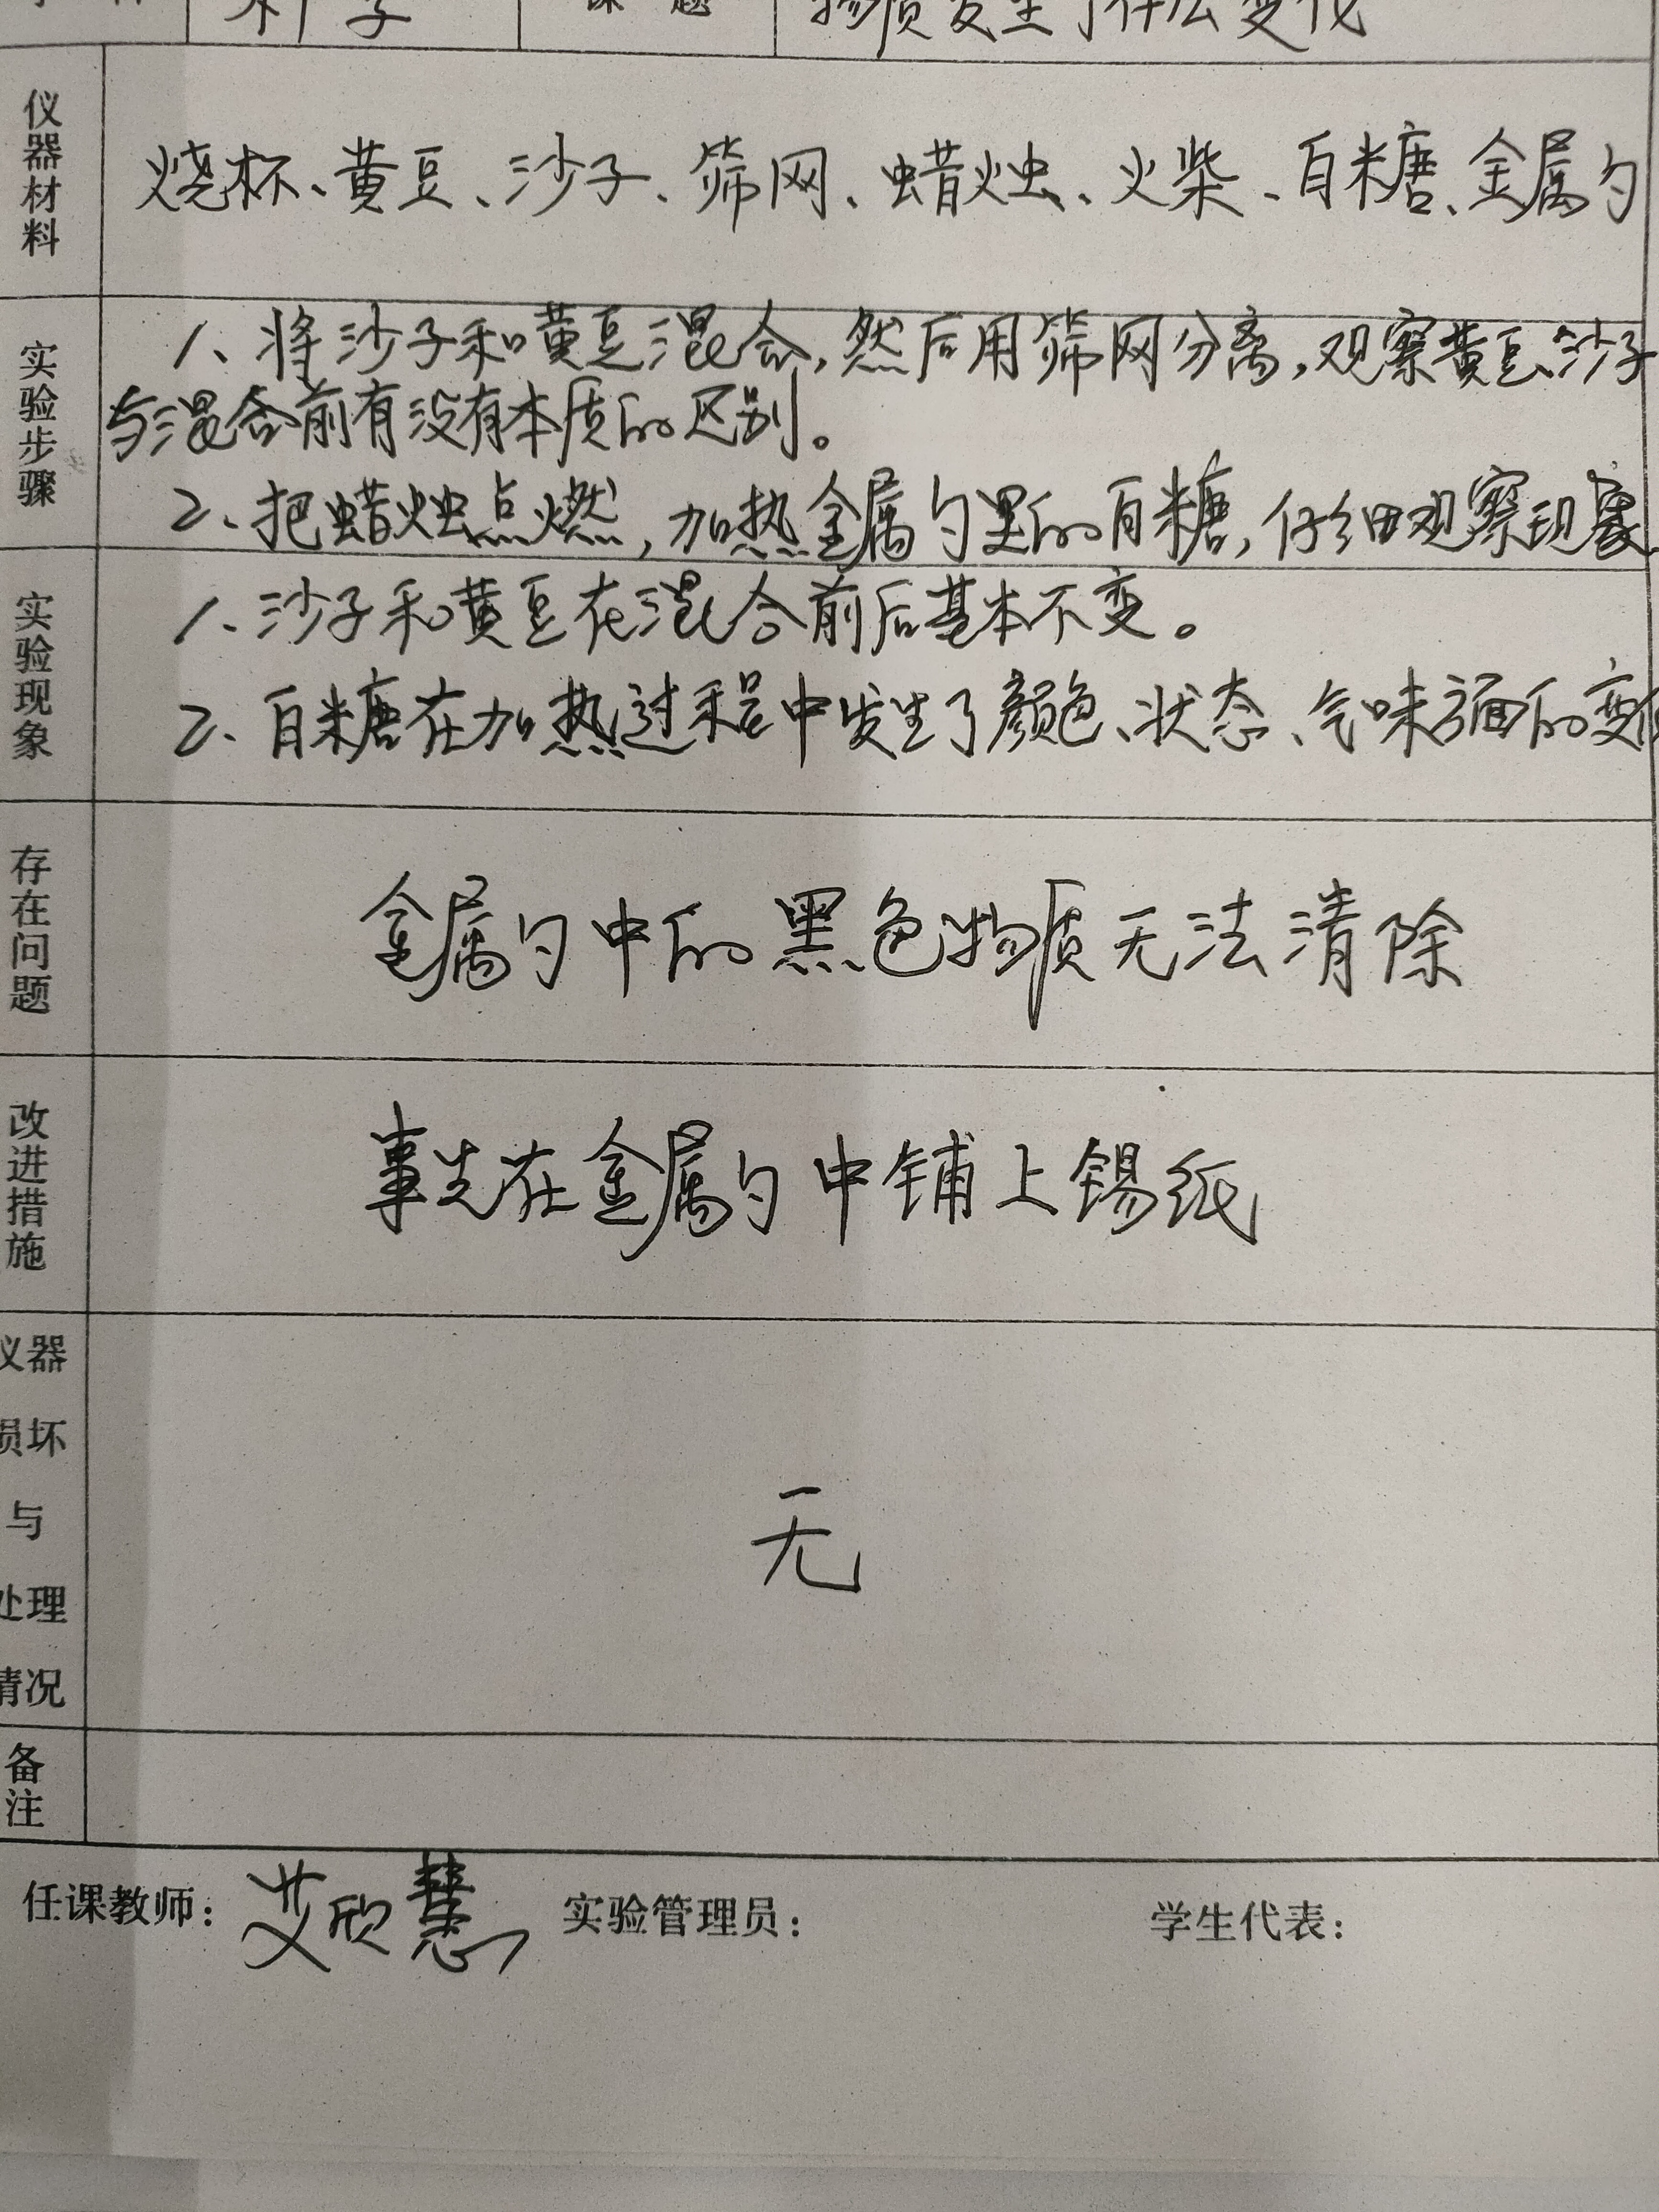 科学 课题 物质发生了什么变化
仪器材料 烧杯、黄豆、沙子、筛网、蜡烛、火柴、白糖、金属勺
实验步骤 1、将沙子和黄豆混合,然后用筛网分离,观察黄豆、沙子
与混合前有没有本质的区别。
2、把蜡烛点燃,加热金属勺里的白糖,仔细观察现象
实验现象 1、沙子和黄豆在混合前后基本不变。
2、白糖在加热过程中发生了颜色、状态、气味方面的变化
存在问题 金属勺中的黑色物质无法清除
改进措施 事先在金属勺中铺上锡纸
仪器
损坏
与
处理
情况
无
备注
任课教师: 艾欣慧 实验管理员: 学生代表: